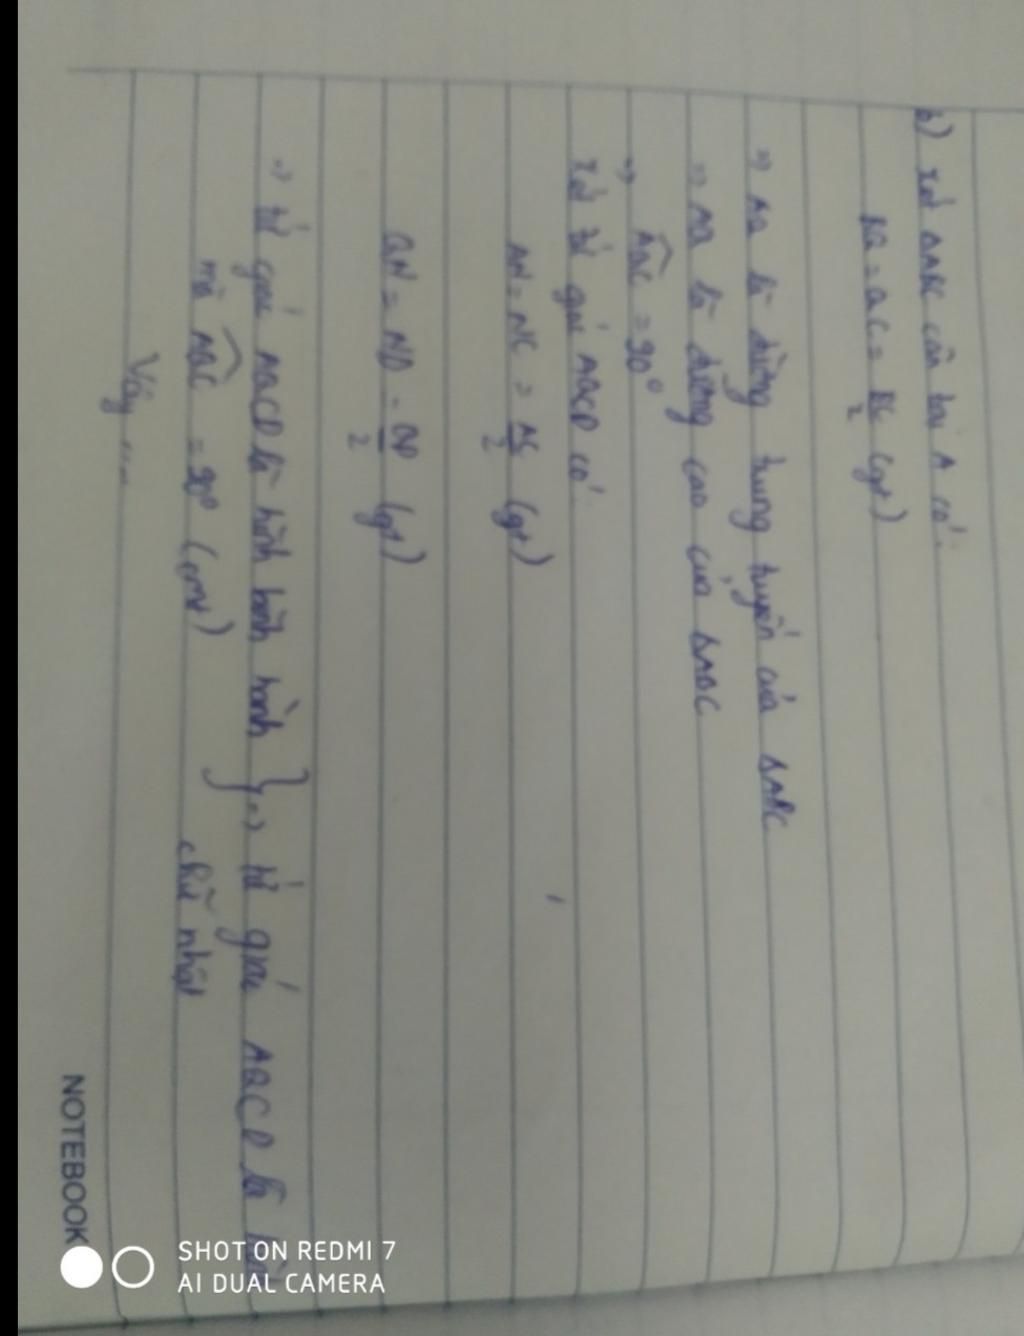 b) Xét ΔABC cân tại A có:
BQ = QC = BC/2 (gt)
=> AQ là đường trung tuyến của ΔABC
=> AQ là đường cao của ΔABC
=> AQC = 90°
Xét tứ giác AQCD có:
AN = NC = AC/2 (gt)
QN = ND = QD/2 (gt)
=> tứ giác AQCD là hình bình hành } => tứ giác AQCD là
mà AQC = 90° (cmt) chữ nhật
Vậy ....
NOTEBOOK
SHOT ON REDMI 7
AI DUAL CAMERA